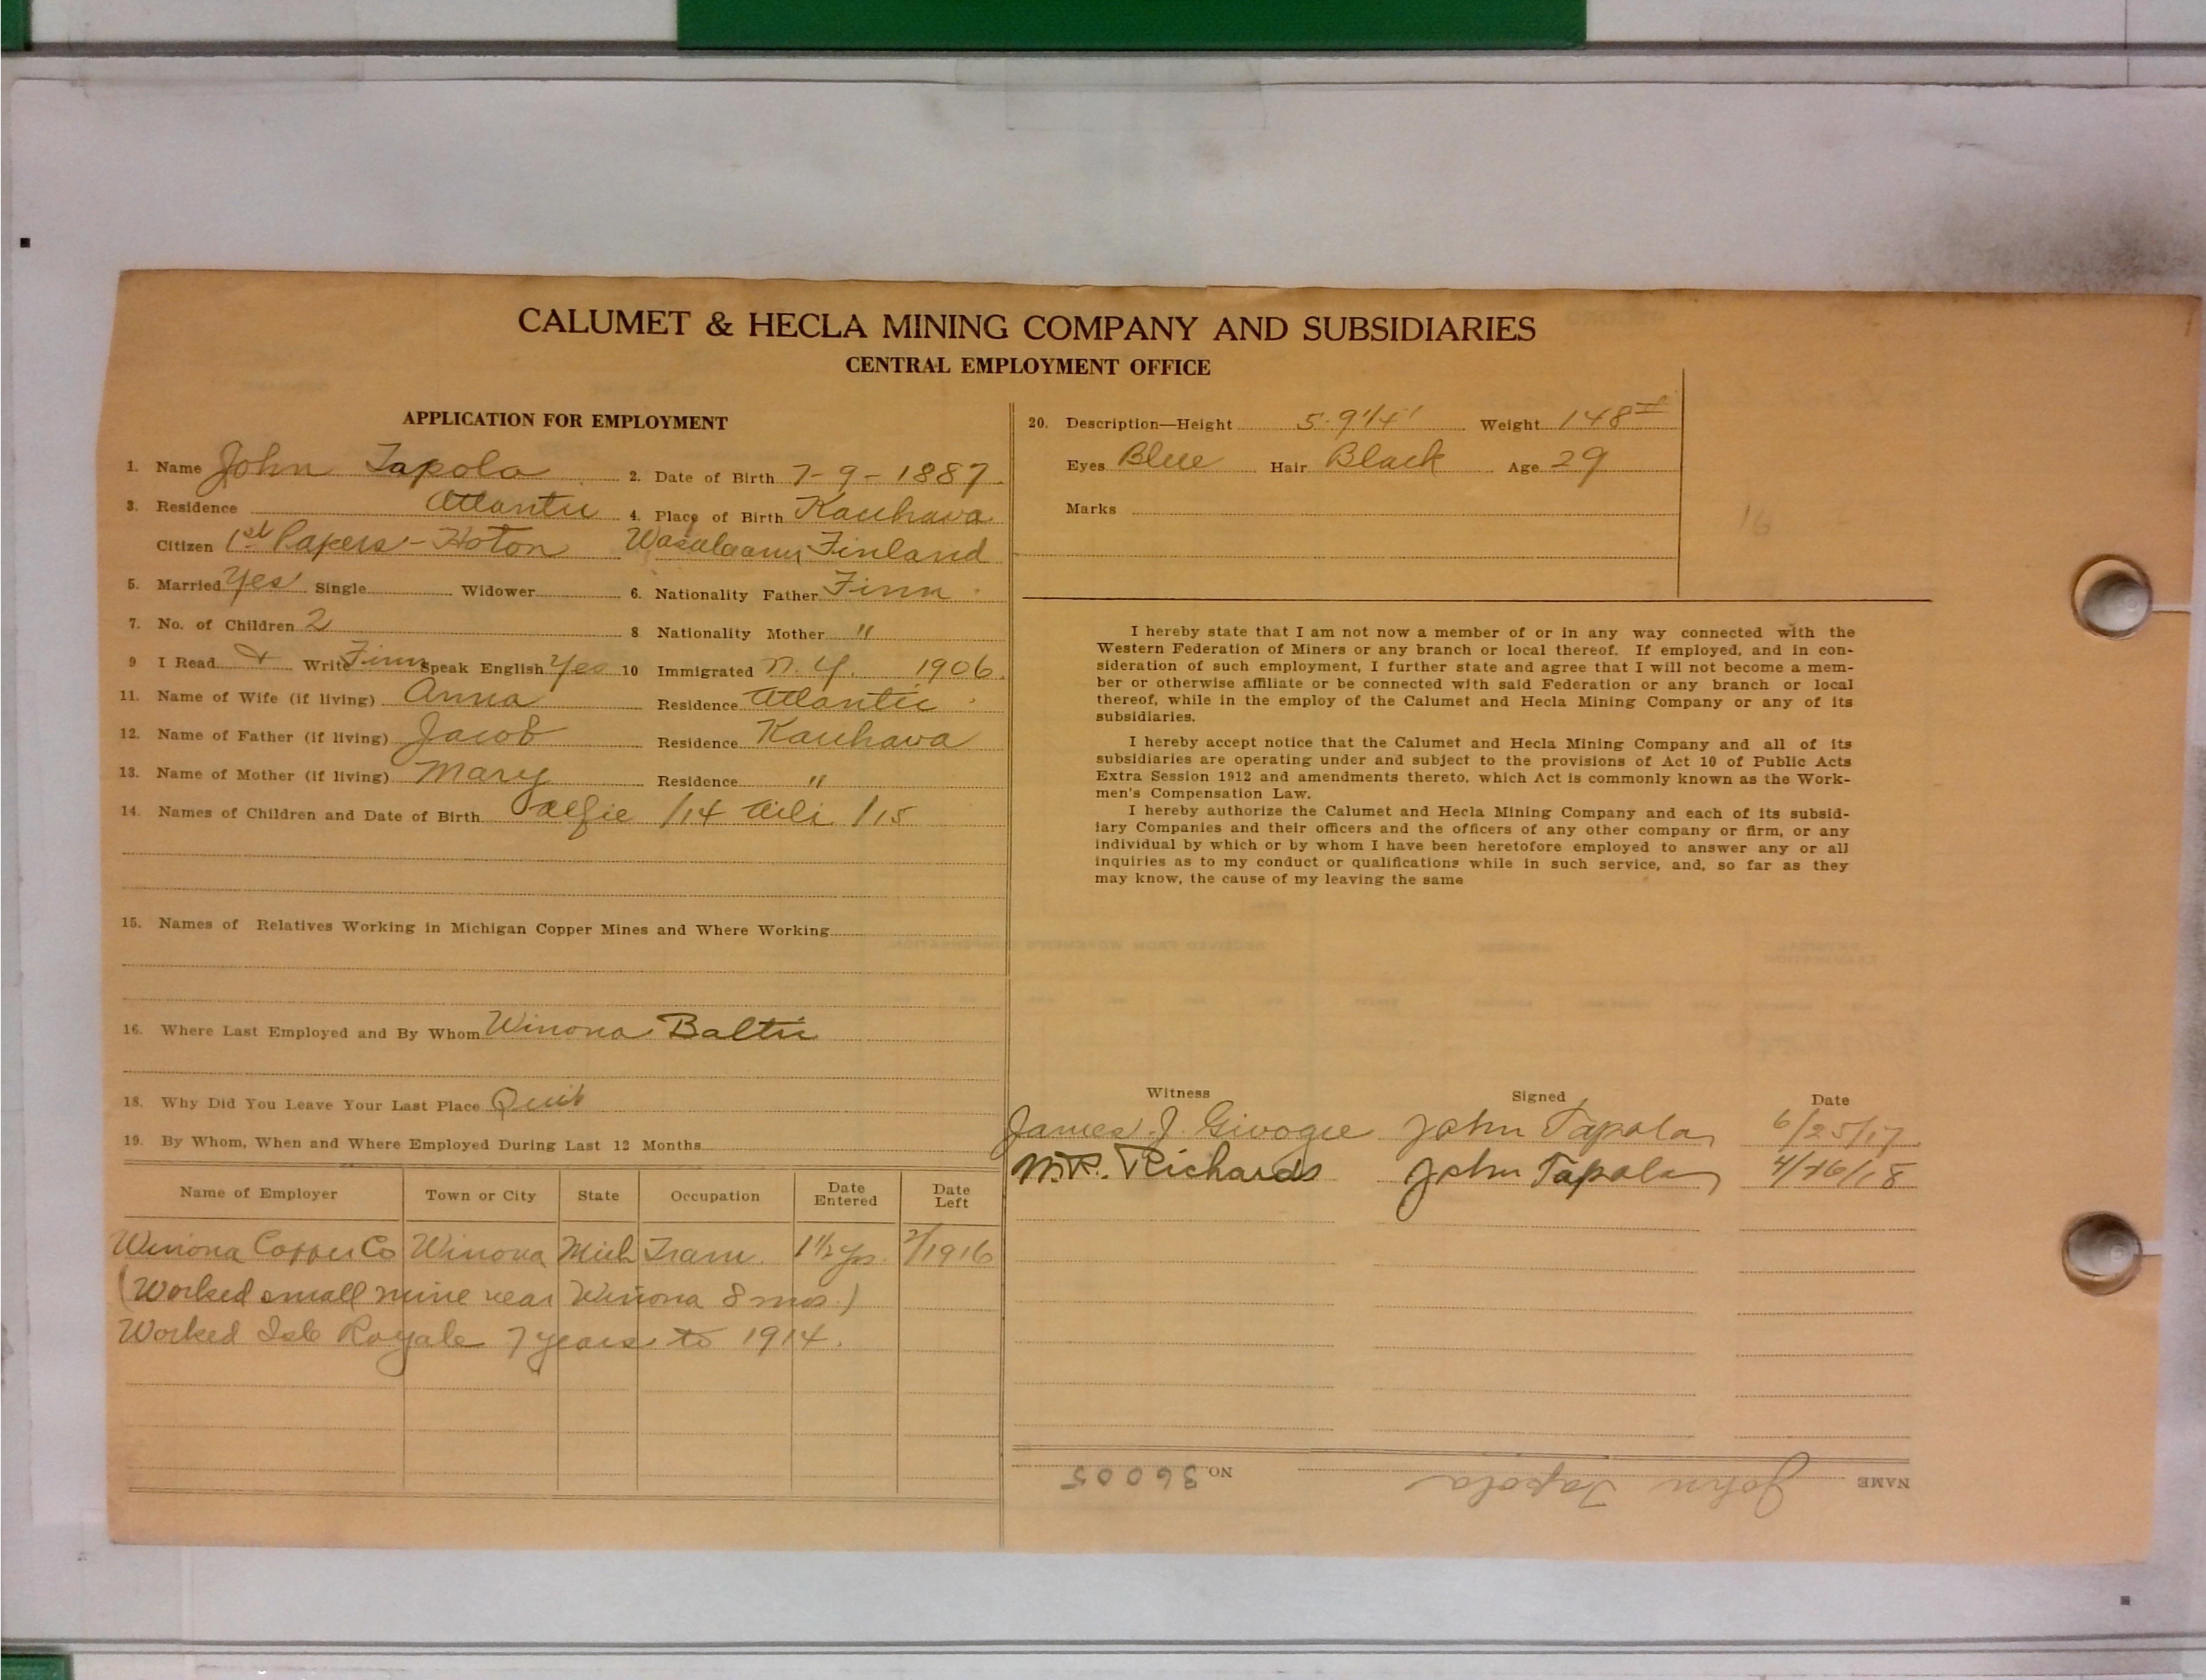 CALUMET & HECLA MINING COMPANY AND SUBSIDIARIES
CENTRAL EMPLOYMENT OFFICE
APPLICATION FOR EMPLOYMENT
1. Name John Tapola 2. Date of Birth 7-9-1887
3. Residence Atlantic 4. Place of Birth Kauhava
Citizen 1st Papers - Hoton Wasalaani Finland
5. Married Yes Single Widower 6. Nationality Father Finn
7. No. of Children 2 8 Nationality Mother "
9 I Read & Write Finn Speak English Yes 10 Immigrated N.Y. 1906
11. Name of Wife (if living) Anna Residence Atlantic
12. Name of Father (if living) Jacob Residence Kauhava
13. Name of Mother (if living) Mary Residence "
14. Names of Children and Date of Birth /14 Aili /15
15. Names of Relatives Working in Michigan Copper Mines and Where Working
16. Where Last Employed and By Whom Winona Baltic
18. Why Did You Leave Your Last Place Quit
19. By Whom, When and Where Employed During Last 12 Months
Name of Employer Town or City State Occupation Date Entered Date Left
Winona Copper Co Winona Mich Tram. 1 1/2 yrs. 2/1916
(Worked small mine near Winona 8 mos.)
Worked Isle Royale 7 years to 1914.
20. Description—Height 5-9 1/4 Weight 148#
Eyes Blue Hair Black Age 29
Marks
16
I hereby state that I am not now a member of or in any way connected with the
Western Federation of Miners or any branch or local thereof. If employed, and in con-
sideration of such employment, I further state and agree that I will not become a mem-
ber or otherwise affiliate or be connected with said Federation or any branch or local
thereof, while in the employ of the Calumet and Hecla Mining Company or any of its
subsidiaries.
I hereby accept notice that the Calumet and Hecla Mining Company and all of its
subsidiaries are operating under and subject to the provisions of Act 10 of Public Acts
Extra Session 1912 and amendments thereto, which Act is commonly known as the Work-
men's Compensation Law.
I hereby authorize the Calumet and Hecla Mining Company and each of its subsid-
iary Companies and their officers and the officers of any other company or firm, or any
individual by which or by whom I have been heretofore employed to answer any or all
inquiries as to my conduct or qualifications while in such service, and, so far as they
may know, the cause of my leaving the same
Witness Signed Date
James J. John Tapola 6/25/17
W.R. Richards John Tapola 4/16/18
NAME John Tapola NO. 36005